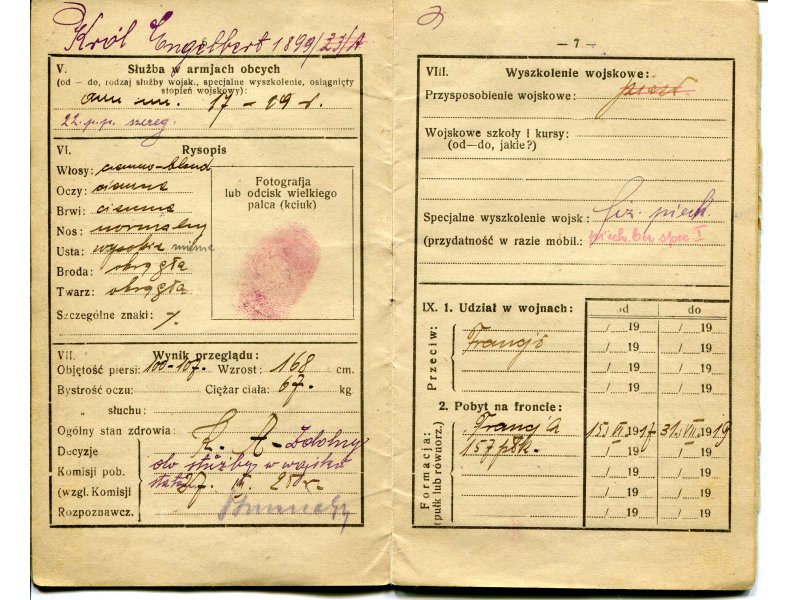 Król Engelbert 1899/23/A
V. Służba w armjach obcych
(od — do, rodzaj służby wojsk., specjalne wyszkolenie, osiągnięty
stopień wojskowy):
17 - 19 r.
22.p.p. szereg.
VI. Rysopis
Włosy: ciemno-blond
Oczy: ciemne
Brwi: ciemne
Nos: normalny
Usta:
Broda: okrągła
Twarz: okrągła
Szczególne znaki: /.
Fotografja
lub odcisk wielkiego
palca (kciuk)
VII. Wynik przeglądu:
Objętość piersi: 100-107. Wzrost: 168 cm.
Bystrość oczu: Ciężar ciała: 67. kg.
„ słuchu:
Ogólny stan zdrowia:
Decyzje
Komisji pob.
(wzgl. Komisji
Rozpoznawcz.
K. A - Zdolny
do służby w wojsku
— 7 —
VIII. Wyszkolenie wojskowe:
Przysposobienie wojskowe:
Wojskowe szkoły i kursy:
(od—do, jakie?)
Specjalne wyszkolenie wojsk: piech.
(przydatność w razie mobil.: piech. bez spec. I
IX. 1. Udział w wojnach:
od do
Przeciw:
Francji
/ / 19 / / 19
/ / 19 / / 19
/ / 19 / / 19
/ / 19 / / 19
2. Pobyt na froncie:
Formacja:
(pułk lub równorz.)
Francja 15/VI 1917 31/VII 1919
157 płk.
/ / 19 / / 19
/ / 19 / / 19
/ / 19 / / 19
/ / 19 / / 19